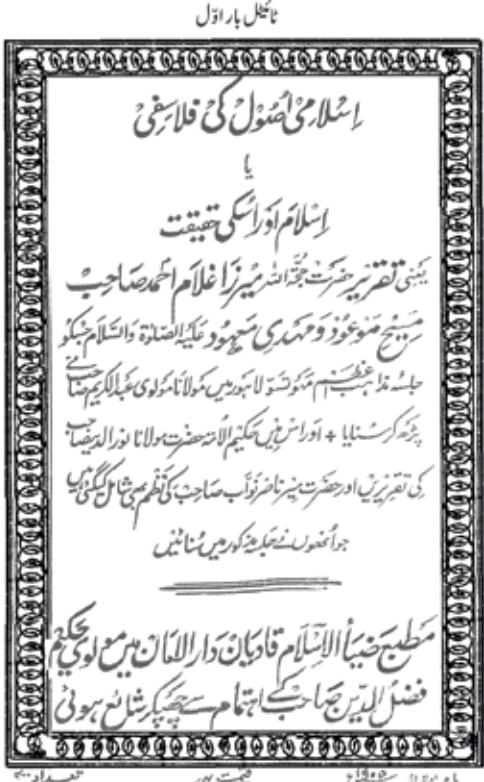 ٹائیٹل بار اوّل
اِسْلَامِی اُصُول کی فلاسفی
یا
اِسْلَام اَور اُسکی حقیقت
یعنی تقریر حضرت حُجّۃُ اللہ مِیْرزَا غلَام احمد صاحب
مسیح موعود و مہدی معہود علیہ الصلوٰۃ والسلام جسکو
جلسہ مذاہب عظیم مہوتسو لاہور میں مولانا مولوی عبدالکریم صاحب نے
پڑھ کر سنایا + اور اس میں حکیم الامۃ حضرت مولانا نورالدین صاحب
کی تقریریں اور حضرت میر ناصر نواب صاحب کی نظم بھی شامل کی گئی ہیں
جو اُنھوں نے جلسہ مذکور میں سُنائیں
مطبع ضیاء الاسلام قادیان دار الامان میں مولوی حکیم
فضل الدین صاحب کے اہتمام سے چھپکر شائع ہوئی
سنہ ۱۹۰۵ء قیمت تعداد